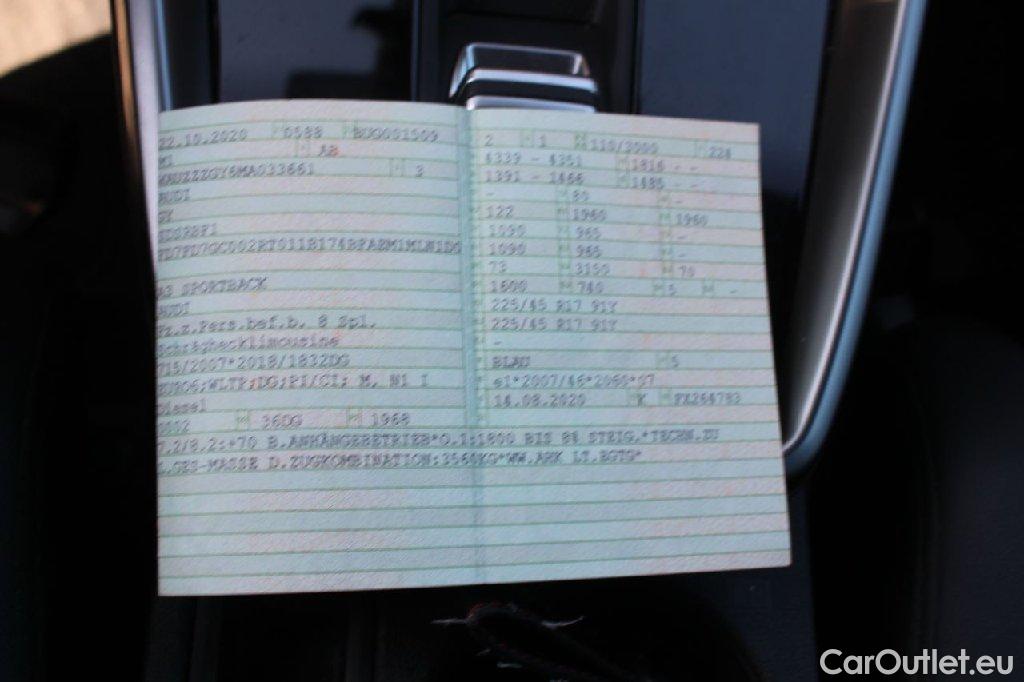 22.10.2020 0588 BUG001509
M1 AB
WAUZZZGY6MA033661 3
AUDI
GY
A3 SPORTBACK
AUDI
Fz.z.Pers.bef.b. 8 Spl.
Schräghecklimousine
715/2007*2018/1832DG
EURO6;WLTP;DG;PI/CI; M, N1 I
Diesel
0002 36DG 1968
7.2/8.2:+70 B.ANHÄNGEBETRIEB*O.1:1800 BIS 8% STEIG.*TECHN.ZU
L.GES-MASSE D.ZUGKOMBINATION:3560KG*WW.AHK LT.EGTG*
2 1 110/3000 224
4339 - 4351 1816 - -
1391 - 1466 1485 - -
- 80 -
122 1960 1960
1090 965 -
1090 965 -
73 3150 70
1600 740 5 -
225/45 R17 91Y
225/45 R17 91Y
-
BLAU 5
e1*2007/46*2060*07
14.08.2020 K
CarOutlet.eu